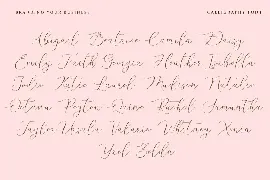 BRANDING YOUR BUSINESS CALLIGRAPHY FONT
Abigail Beatrice Camila Daisy
Emily Faith Georgia Heather Isabella
Jolie Katie Laurel Madison Natalie
Octavia Peyton Quinn Rachel Samantha
Taylor Ursula Valerie Whitney Xenia
Yael Zelda